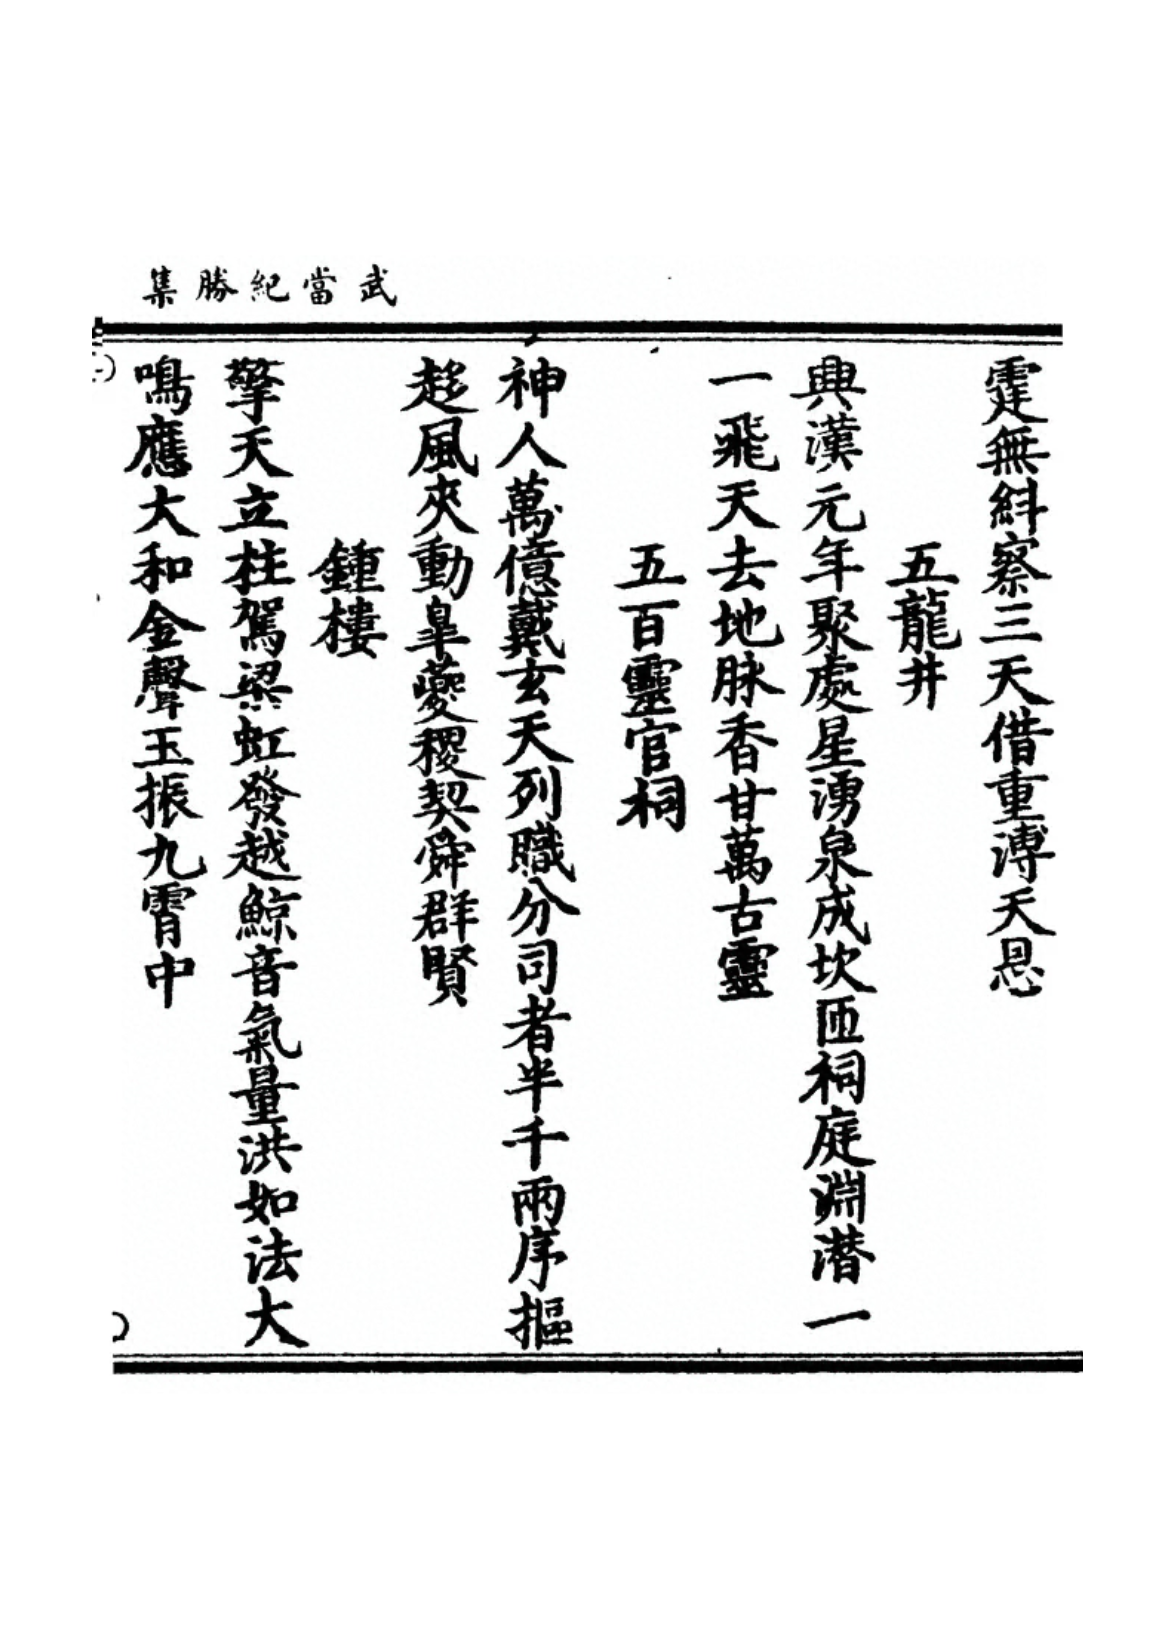 武當紀勝集
霆無紏察三天借重溥天恩
五龍井
興漢元年聚處星湧泉成坎匝祠庭淵潛一
一飛天去地脉香甘萬古靈
五百靈官祠
神人萬億戴玄天列職分司者半千兩序摳
趍風夾動臯夔稷契舜群賢
鍾樓
擎天立柱駕梁虹發越鯨音氣量洪如法大
鳴應大和金聲玉振九霄中